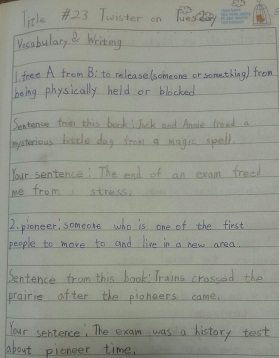 Title #23 Twister on Tuesday
Vocabulary & Writing
1. free A from B: to release (someone or something) from
being physically held or blocked
Sentence from this book: Jack and Annie freed a
mysterious little dog from a magic spell.
Your sentence: The end of an exam freed
me from stress.
2. pioneer: someone who is one of the first
people to move to and live in a new area.
Sentence from this book: Trains crossed the
prairie after the pioneers came.
Your sentence: The exam was a history test
about pioneer time.